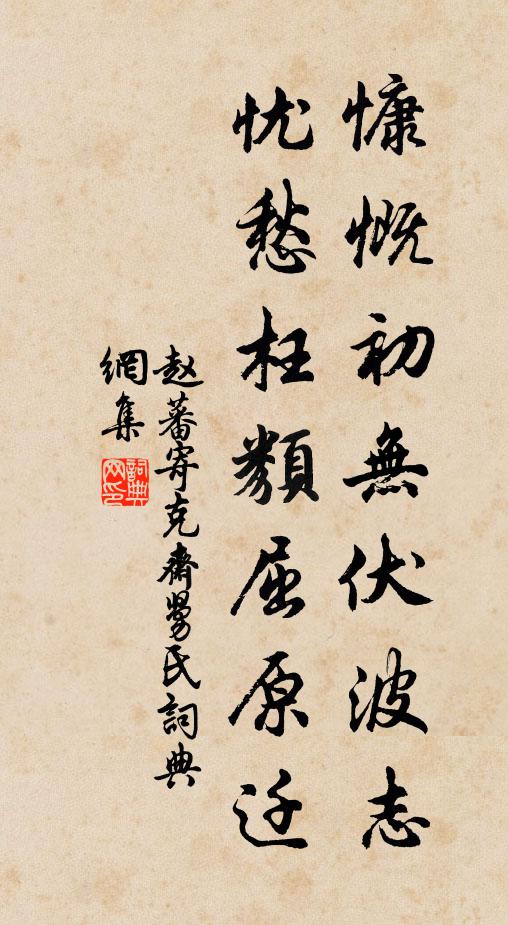 慷慨初無伏波志
忧愁枉類屈原迁
赵蕃寄克齋舅氏詞典
網集
詞典網印